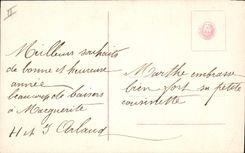 Meilleurs souhaits
de bonne et heureuse
année
beaucoup de baisers
à Marguerite
H et J Arlaud
Marthe embrasse
bien fort sa petite
cousinette